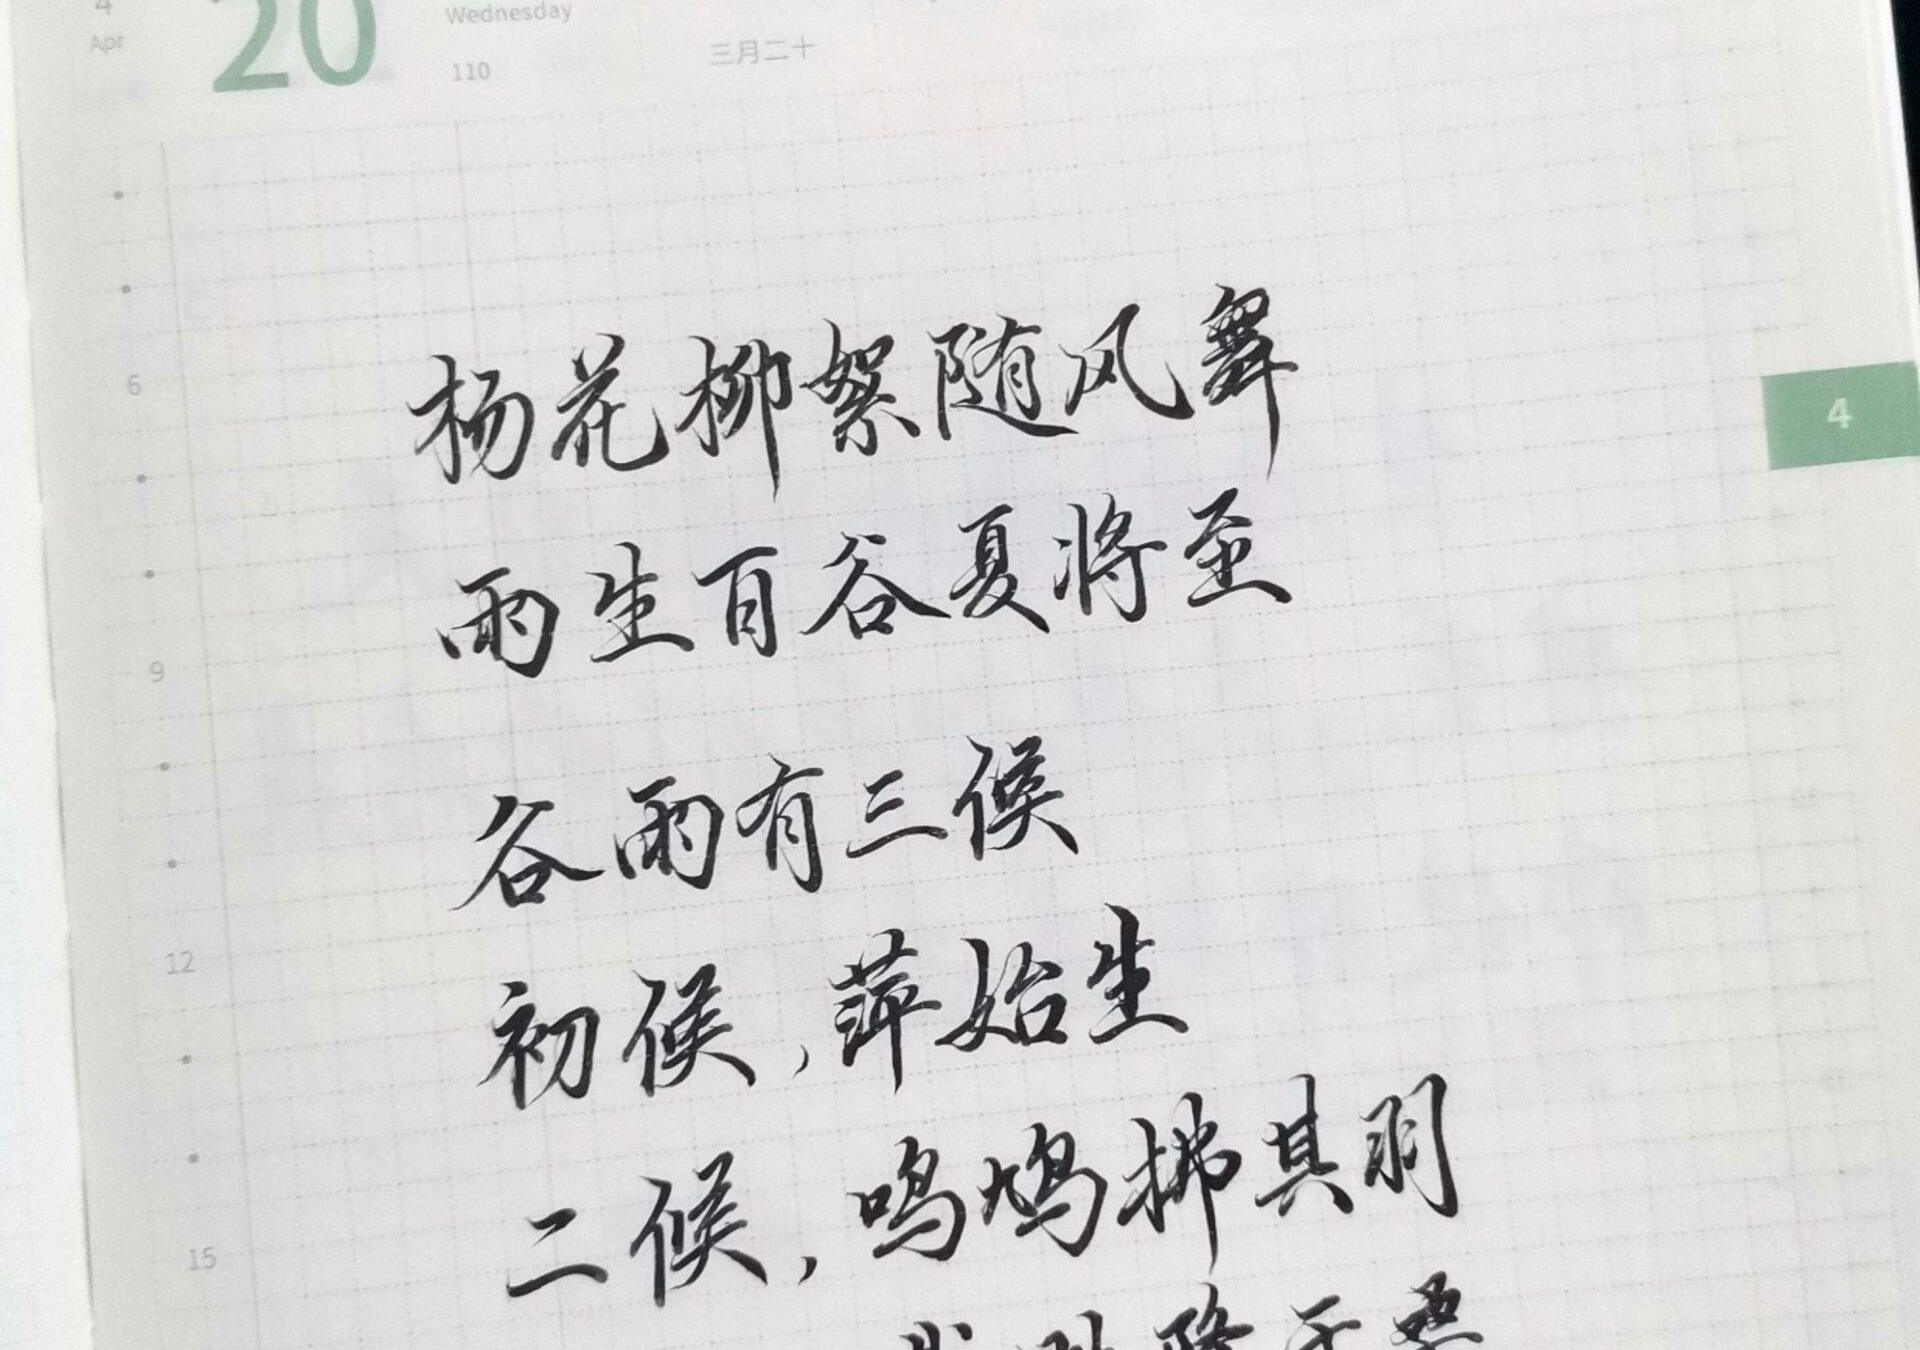 4
Apr
20
Wednesday
110
三月二十
6
杨花柳絮随风舞
4
雨生百谷夏将至
9
谷雨有三候
12
初候,萍始生
二候,鸣鸠拂其羽
15
降于桑